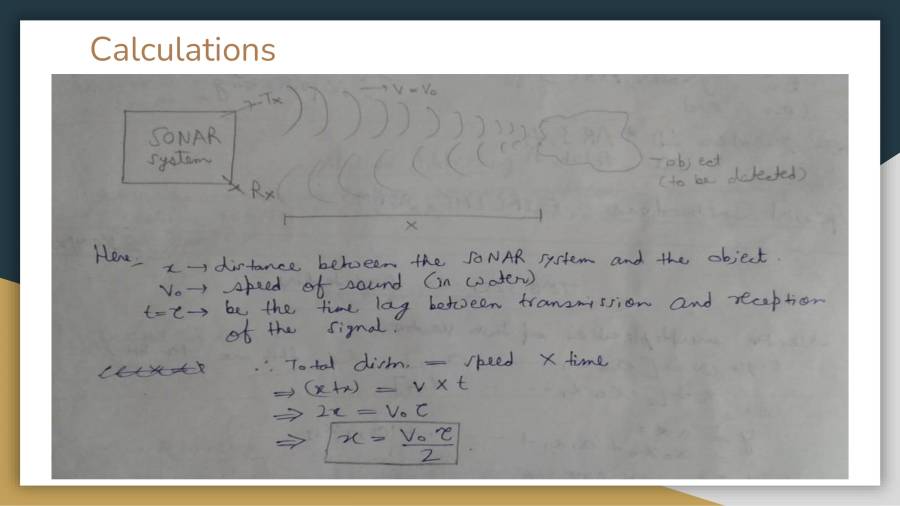 Calculations
Tx
→ V = V₀
SONAR
system
Rx
object
(to be detected)
x
Here,
x → distance between the SONAR system and the object.
V₀ → speed of sound (in water)
t=τ → be the time lag between transmission and reception
of the signal.
∴ Total distn. = speed × time
⇒ (x+x) = v × t
⇒ 2x = V₀ τ
⇒ x = V₀ τ / 2